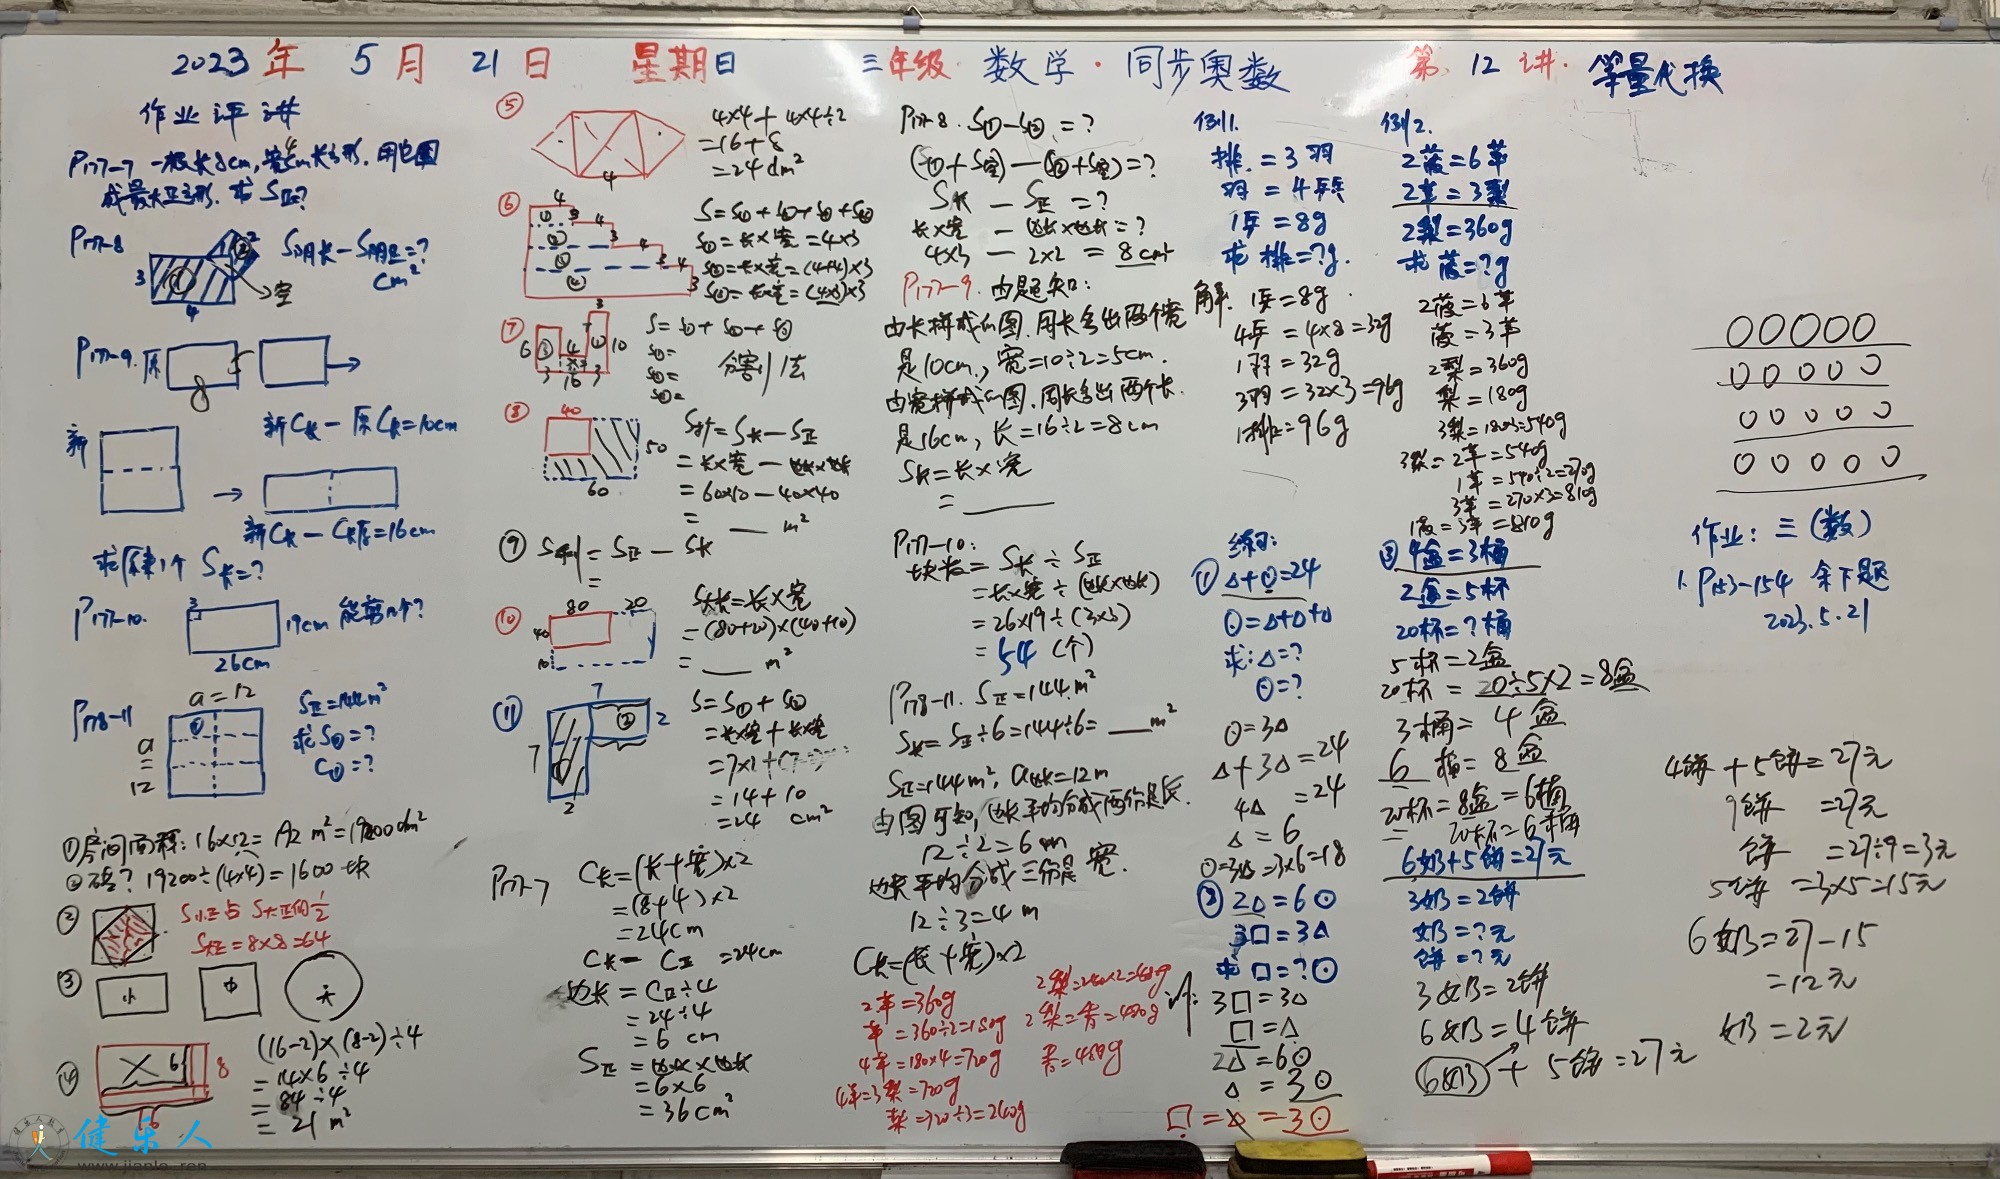 2023年 5月 21日 星期日 三年级·数学·同步奥数 第12讲·等量代换
作业评讲
P177-7 一根长8cm,宽4cm长方形.用它围
成最大正方形.求S正?
P177-8
3
4
①
②
2
空
S阴长-S阴正=?
cm²
P177-9. 原
8
5
新
新C长-原C长=10cm
新C长-C长原=16cm
求原来1个S长=?
P177-10.
3
19cm 能剪几个?
26cm
P178-11
a=12
a
=
12
①
S正=144m²
求S①=?
C①=?
①房间面积:
②砖? 19200÷(4×4)=1600块
②
S小正占S大正的1/2
S大正=8×8=64
③
小
中
大
⑭
6
8
16
(16-2)×(8-2)÷4
=14×6÷4
=84÷4
=21m²
⑤
4
4×4+4×4÷2
=16+8
=24dm²
⑥
S=S①+S②+S③+S④
S①=长×宽=4×3
S②=长×宽=(4+4)×3
⑦
6
3
4
16
3
3
10
分割法
⑧
40
50
60
=长×宽-边长×边长
=60×50-40×40
=____m²
⑨
=
⑩
80
20
40
10
S大长=长×宽
=(80+20)×(40+10)
=____m²
⑪
7
7
2
2
①
②
S=S①+S②
=长×宽+长×宽
=14+10
=24 cm²
P177-7
C长=(长+宽)×2
=(8+4)×2
=24cm
C长=C正=24cm
边长=C正÷4
=24÷4
=6 cm
S正=边长×边长
=6×6
=36cm²
P177-8. S①-S②=?
(S①+S空)-(S②+S空)=?
S长-S正=?
长×宽-边长×边长=?
4×3-2×2=8cm²
P177-9. 由题知:
由长拼成的图.周长多出两个宽
是10cm,宽=10÷2=5cm.
由宽拼成的图.周长多出两个长.
是16cm,长=16÷2=8cm
S长=长×宽
=____
P177-10:
块数=S长÷S正
=长×宽÷(边长×边长)
=26×19÷(3×3)
=54(个)
P178-11. S正=144m²
S长=S正÷6=144÷6=____m²
S正=144m²,a边长=12m
由图可知,边长平均分成两份是长.
12÷2=6m
边长平均分成三份是宽.
12÷3=4m
C长=(长+宽)×2
2苹=360g
苹=360÷2=180g
4苹=180×4=720g
4苹=3梨=720g
梨=720÷3=240g
2梨=240×2=480g
例1.
排=3羽
羽=4乒
1乒=8g
求排=?g.
解: 1乒=8g
4乒=4×8=32g
1羽=32g
3羽=32×3=96g
1排=96g
练习:
①△+⊙=24
⊙=△+△+△
求:△=?
⊙=?
⊙=3△
△+3△=24
4△=24
△=6
⊙=3△=3×6=18
②2△=6⊙
3□=3△
求□=?⊙
3□=3△
□=△
2△=6⊙
△=3⊙
□=△=3⊙
例2.
2菠=6苹
2苹=3梨
2梨=360g
求菠=?g
2菠=6苹
菠=3苹
2梨=360g
梨=180g
3梨=180×3=540g
3梨=2苹=540g
1苹=540÷2=270g
3苹=270×3=810g
1菠=3苹=810g
③4盒=3桶
2盒=5杯
20杯=?桶
5杯=2盒
20杯=20÷5×2=8盒
3桶=4盒
6桶=8盒
20杯=8盒=6桶
20杯=6桶
6奶+5饼=27元
3奶=2饼
奶=?元
饼=?元
3奶=2饼
6奶=4饼
6奶+5饼=27元
作业:三(数)
1.P153-154 余下题
2023.5.21
4饼+5饼=27元
9饼=27元
饼=27÷9=3元
5饼=3×5=15元
6奶=27-15
=12元
奶=2元
健乐人
www.jianle.ren